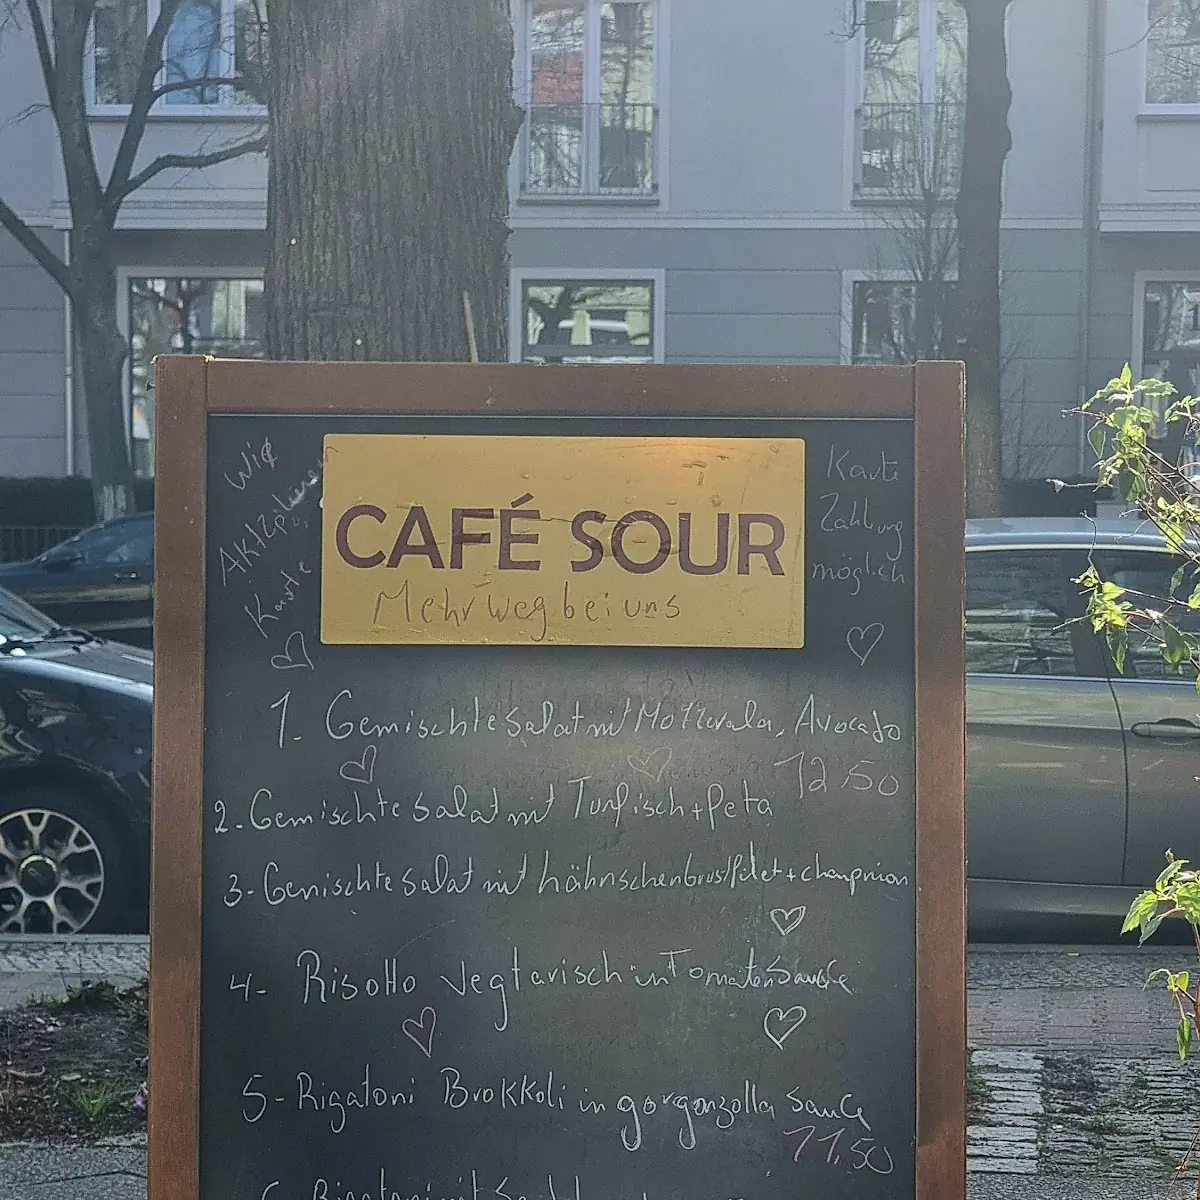 Wie
Aktzptieren
Karte
CAFÉ SOUR
Mehrweg bei uns
Karte
Zahlung
möglich
1. Gemischte Salat mit Mozzerala, Avocado
12.50
2. Gemischte Salat mit Tunfisch + feta
3- Gemischte Salat mit hähnschenbrustfilet + champnion
4- Risotto vegtarisch in Tomatensauce
5- Rigatoni Brokkoli in gorgonzolla sauce
11,50
6 Rigatoni mit